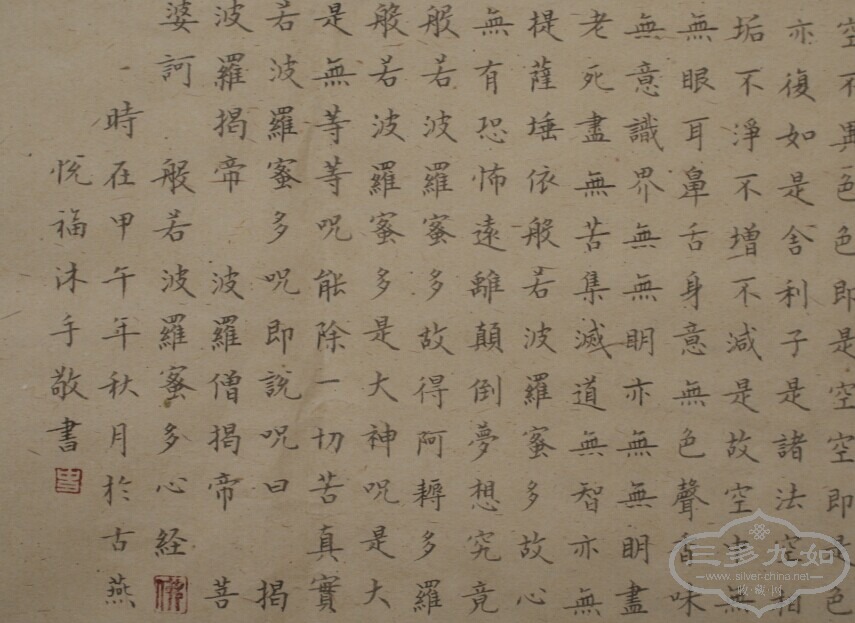 空不異色色即是空空即是色
亦復如是舍利子是諸法空相
垢不淨不增不減是故空中無
無眼耳鼻舌身意無色聲香味
無意識界無無明亦無無明盡
老死盡無苦集滅道無智亦無
提薩埵依般若波羅蜜多故心
無有恐怖遠離顛倒夢想究竟
般若波羅蜜多故得阿耨多羅
般若波羅蜜多是大神呪是大
是無等等呪能除一切苦真實
若波羅蜜多呪即說呪曰 揭
波羅揭帝 波羅僧揭帝 菩
婆訶 般若波羅蜜多心経
時在甲午年秋月於古燕
悅福沐手敬書
三多九如
www.silver-china.net
收·藏·网